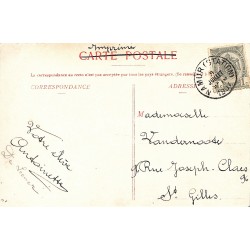 Imprimé
CARTE POSTALE
La correspondance au recto n'est pas acceptée par tous les pays étrangers.
CORRESPONDANCE
ADRESSE
NAMUR (STATION)
Mademoiselle
Vandanoose
Rue Joseph-Claes
St Gilles
Votre
Antoinette